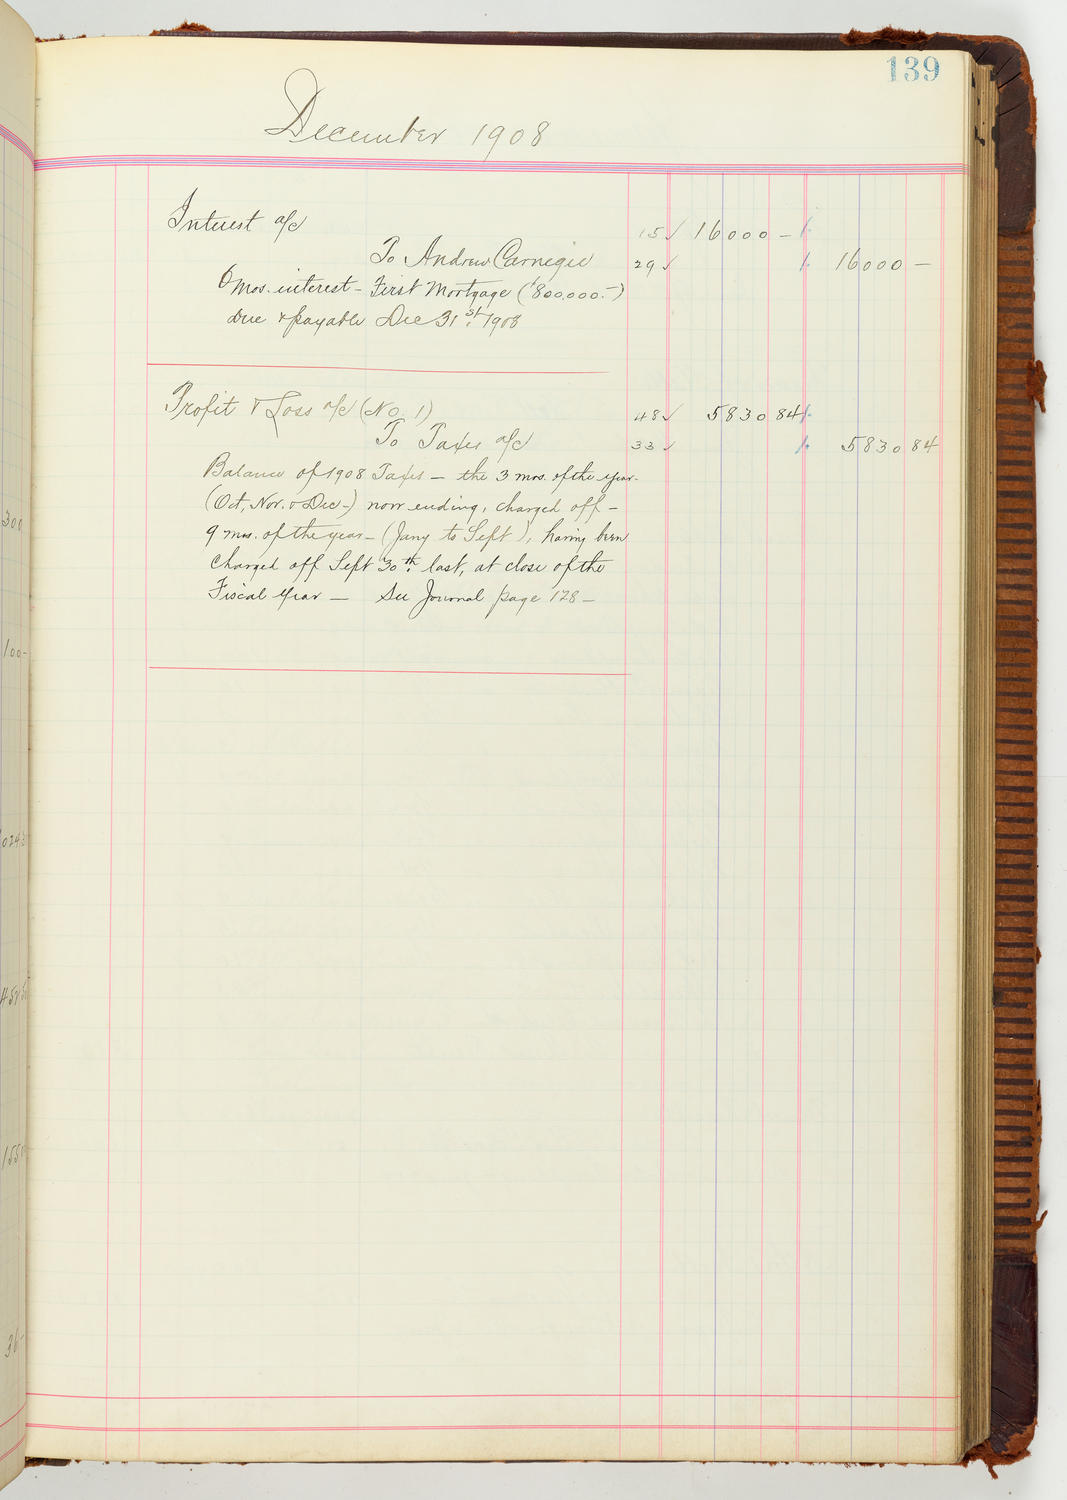 139
December 1908
Interest a/c 15 ✓ 16000 –
To Andrew Carnegie 29 ✓ 16000 –
6 mos. interest – First Mortgage ($800,000.–)
due & payable Dec 31st 1908
Profit & Loss a/c (No. 1) 48 ✓ 5830 84
To Taxes a/c 33 ✓ 5830 84
Balance of 1908 Taxes – the 3 mos. of the year –
(Oct, Nov. & Dec –) now ending, charged off –
9 mos. of the year – (Jany to Sept), having been
charged off Sept 30th last, at close of the
Fiscal Year – See Journal page 128 –
300
100–
024
155
36–